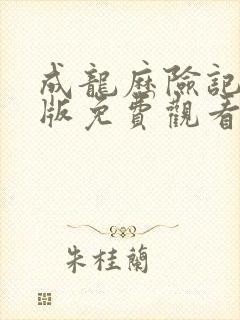 成龍歷險記
版免費觀看
朱桂蘭